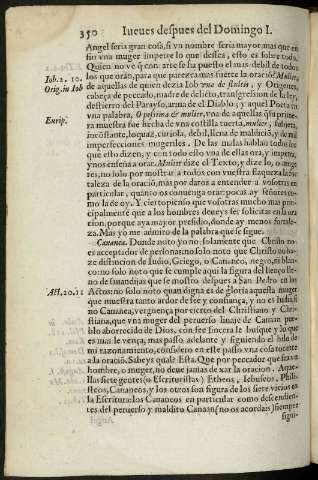 350 Iueues despues del Domingo I.
Angel seria gran cosa, si vn hombre seria mayor, mas que en
sin vna muger impetre lo que desea, esto es sobre todo.
Quien no ve q̃ con arte se ha puesto el mas debil de todos
Iob. 2. 10. los que orã, para que parezca mas fuerte la oraciõ? Mulier,
Orig. in Iob de aquellas de quien dezia Iob vna de stultis, y Origenes,
cabeça de pecado, madre de delicto, transgression de la ley,
destierro del Parayso, arma de el Diablo; y aquel Poeta in
Eurip. vna palabra, O pessima è mulier, vna de aquellas q̃ su prime-
ra muestra fue hecha de vna costilla tuerta, mulier, subjeta,
incõstante, loquaz, curiosa, debil, llena de maldiciõ, y de mil
imperfecciones mugeriles. De las malas hablo todos los
que esto dizen, y con todo esto vna de ellas ora, y impetra,
y nos enseña a orar. Mulier dize el Texto, y dize lo, o muge
res, no solo por mostrar a todos con vuestra flaqueza la for
taleza de la oraciõ, mas por daros a entender a vosotras en
particular, quanto os conuiene orar: pocas ay señores co-
mo la de oy. Y ciertopienso que vosotras mucho mas prin
cipalmente que a los hombres deueys ser solicitas en la ora
cion, porque aya mayor presidio, donde ay menos fortale-
za. Mas yo me admiro de la palabra que se sigue.
Cananea. Donde noto yo no solamente que Christo no
es acceptador de personas: no solo noto que Christo no ha-
ze distincion de Iudio, Griego, o Cananeo, negro, es blan-
co: no solo noto que se cumple aqui la figura del lienço lle-
no de sauandijas que se mostro despues a San Pedro en los
Act. 10. 11 Actos: no solo noto quan digna es de gloria aquesta muger
que muestra tanto ardor de fee y confiança, y no es Iudia, si
no Cananea, verguença por cierto del Christiano y Chri-
stiana, que vna muger del peruerso linaje de Canaan pue-
blo aborrecido de Dios, con fee sincera le busque y lo que
es mas le vença, mas passo adelante y siguiendo el hilo de
mi razonamiento, considero en este passo vna cosa tocante
a la oraciõ. Sabeys qual? Esta. Que por peccador que sea vn
hombre, o muger, no deue jamas de xar la oracion. Aque-
llas siete gentes (o Escrituristas) Etheos, Iebuseos, Phili-
steos, Cananeos, y los otros son figura de los siete vicios en
la Escritura: los Cananeos en particular como descendien-
tes del peruerso y maldito Canaan (no os acordais) siempre
sigui-